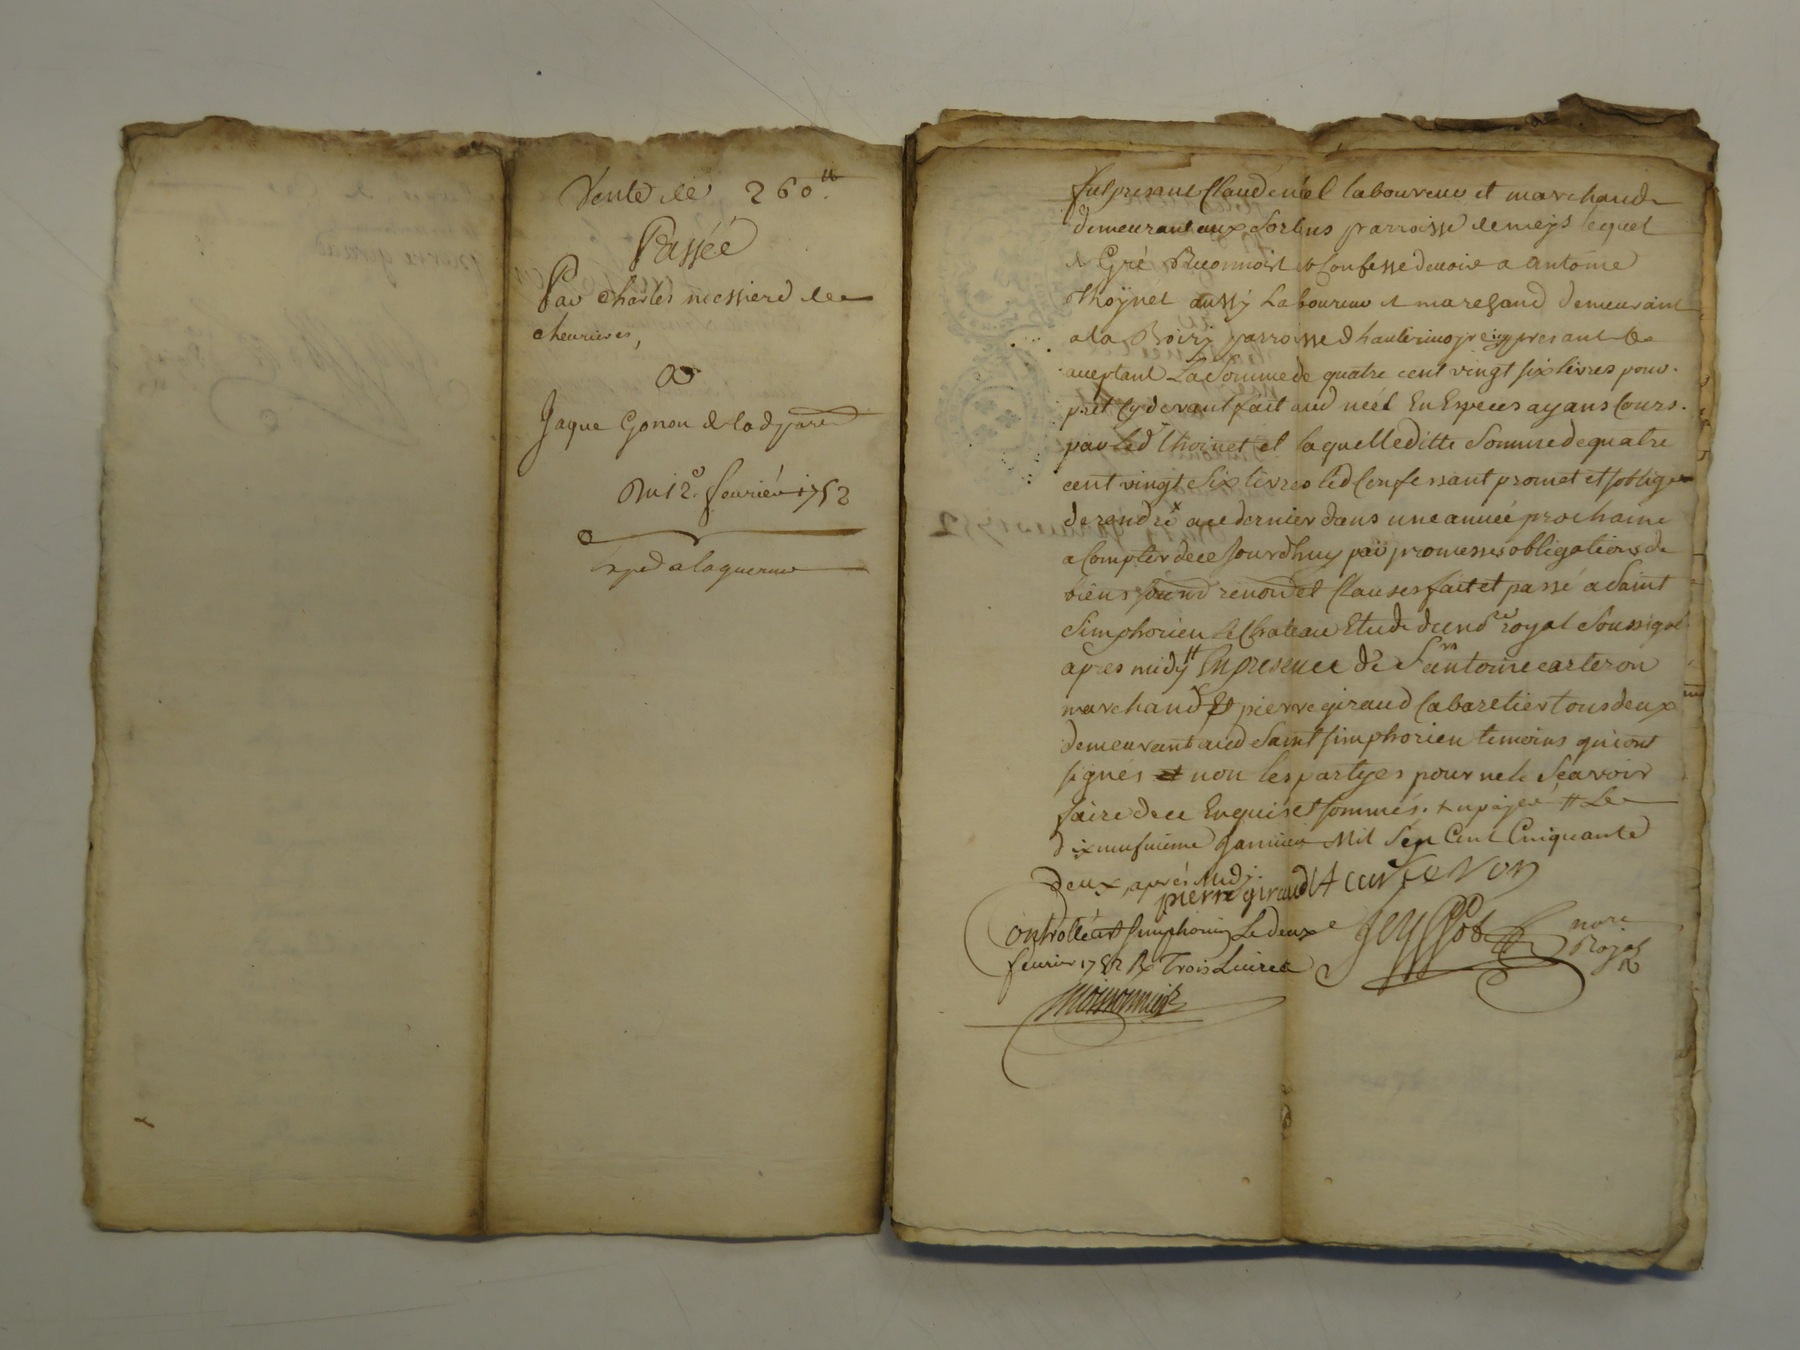 Vente de 260ᵗᵗ
Passéé
Par Charles messierd de
cheurieres,
a
Jaque Gonon de lad parr
Du 12ᵉ feuriér 1752
Exped a laquereur
fut present Claude néel laboureur et marchand
demeurant aux Sorlins parroisse de meys lequel
de Gré Reconnoist et Confesse deuoir a antoine
thoÿnet aussy Laboureur et marchand demeurant
a la Boiry parroisse d'hauterivoire icy present &
aceptant La Somme de quatre cent vingt six livres pour
prêt Cy devant fait aud néel En Especes ayans Cours
par led thoinet et laquelle ditte Somme de quatre
cent vingt Six livres led Confessant promet et s'oblige
de rendre x a ce dernier dans une année prochaine
a Compter de ce Jourd'huy par promesses obligations de
biens soumd renond et Clauses fait et passé a Saint
Simphorien le Chateau Etude du noʳᵉ royal Soussigné
apres midy # En presence de Sʳ antoine carteron
marchand & pierre giraud Cabaretier tous deux
demeurant aud Saint Simphorien temoins qui ont
signés et non les partyes pour ne le Sçavoir
faire de ce Enquis et sommés. x u payée # Le
dixneufuieme Januier Mil Sept Cent Cinquante
Deux, aprés Midy.
pierre giraud A carteron
Controllé a St Simphorien Le deux ᵉ
feurier 1752 R Trois Liures
nore
Royal